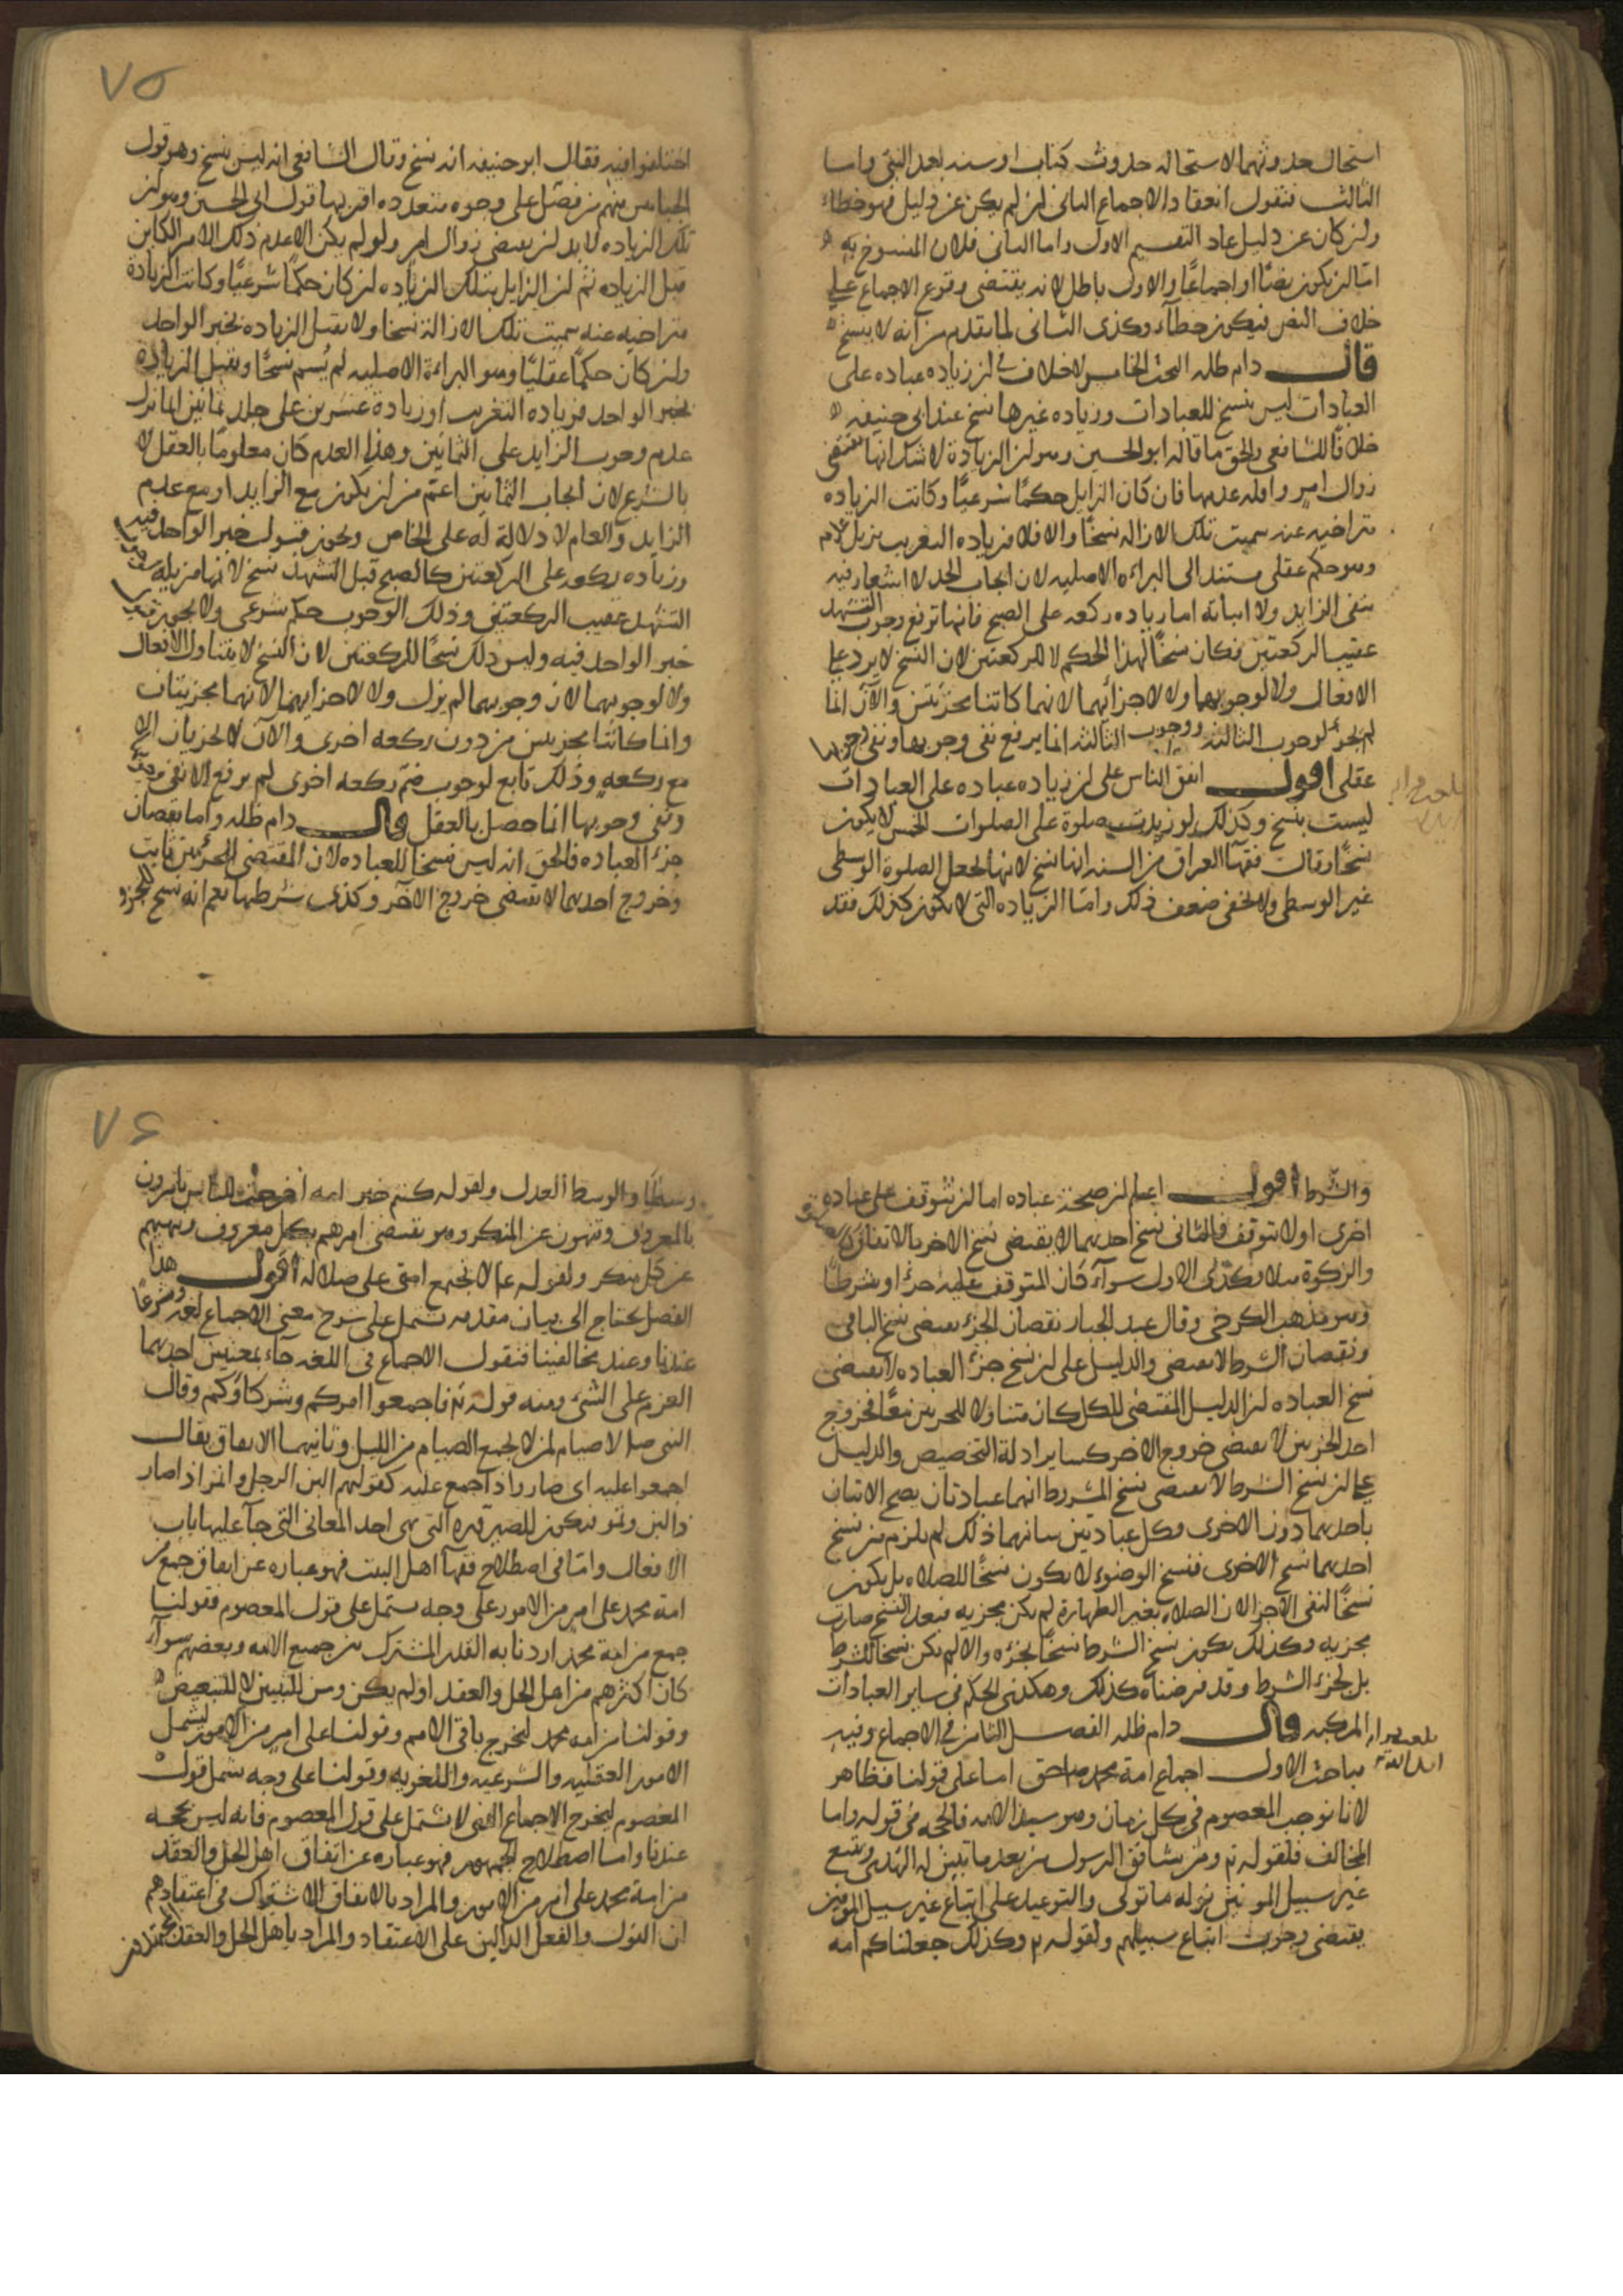 استحال حدوثهما لاستحاله حدوث كتاب او سنه بعد النبي واما
الثالث فنقول انعقاد الاجماع الثانى ان لم يكن عن دليل فهو خطاء
وان كان عن دليل عاد التقسيم الاول واما الثانى فلان المنسوخ به
اما ان يكون نصًا او اجماعًا والاول باطل لانه يقتضى وقوع الاجماع على
خلاف النص فيكون خطآء وكذى الثانى لما تقدم من انه لا ينسخ
قال دام ظله البحث الخامس لا خلاف فى ان زياده عباده على
العبادات ليس بنسخ للعبادات وزياده غيرها نسخ عند ابى حنيفه
خلافًا للشافعى والحق ما قاله ابو الحسين وهو ان الزيادة لا شك انها تقتضى
زوال امر واقله عدمها فان كان الزايل حكمًا شرعيًا وكانت الزياده
متراخيه عنه سميت تلك الازاله نسخًا والا فلا فزياده التغريب يزيل عدم
وهو حكم عقلى مستند الى البراءه الاصليه لان ايجاب الحد لا اشعار فيه
بنفى الزايد ولا اثباته اما زياده ركعه على الصبح فانها ترفع وجوب التشهد
عقيب الركعتين فكان نسخًا لهذا الحكم لا للركعتين لان النسخ لا يرد على
الافعال ولا لوجوبهما ولا لاجزائهما لانهما كانتا مجزئتين والآن انما
لم يجز لوجوب الثالثه ووجوب الثالثه انما يرفع نفى وجوبها ونفى وجوبها
عقلى اقول اتفق الناس على ان زياده عباده على العبادات
ليست بنسخ وكذلك لو زيدت صلوة على الصلوات الخمس لا يكون
نسخًا وقال فقهآ العراق من السنه انها نسخ لانها تجعل الصلوة الوسطى
غير الوسطى ولا يخفى ضعف ذلك واما الزياده التى لا يكون كذلك فقد
٧٥
اختلفوا فيه فقال ابو حنيفه انه نسخ وقال الشافعى انه ليس بنسخ وهو قول
الجبائيين ومنهم من فصّل على وجوه متعدده اقربها قول ابى الحسين وهو ان
تلك الزياده لا بد ان يقتضى زوال امر ولو لم يكن الا عدم ذلك الامر الكاين
قبل الزياده ثم ان الزايل بتلك الزياده ان كان حكمًا شرعيًا وكانت الزيادة
متراخيه عنه سميت تلك الازالة نسخا ولا يقبل الزياده بخبر الواحد
وان كان حكمًا عقليًا وهو البراءة الاصليه لم يُسم نسخًا ويقبل الزيادة
بخبر الواحد فزياده التغريب او زيادة عشرين على جلد ثمانين انما تزيل
عدم وجوب الزايد على الثمانين وهذا العدم كان معلومًا بالعقل لا
بالشرع لان ايجاب الثمانين اعم من ان يكون مع الزايد او مع عدم
الزايد والعام لا دلالة له على الخاص ويجوز قبول خبر الواحد فيه
وزياده ركعه على الركعتين كالصبح قبل التشهد نسخ لانها مزيلة
التشهد عقيب الركعتين وذلك الوجوب حكم شرعى ولا يجوز
خبر الواحد فيه وليس ذلك نسخًا للركعتين لان النسخ لا يتناول الافعال
ولا لوجوبهما لان وجوبهما لم يزل ولا لاجزايهما لانهما مجزيتان
وانما كانتا مجزيتين من دون ركعه اخرى والآن لا تجزيان الا
مع ركعه وذلك تابع لوجوب ضم ركعه اخرى لم يرفع الا نفى
ونفى وجوبها انما حصل بالعقل قال دام ظله واما نقصان
جزء العباده فالحق انه ليس نسخا للعباده لان المقتضى للجزئين ثابت
وخروج احدهما لا يقتضى خروج الآخر وكذى شرطها نعم انه نسخ للجزء
والشرط اقول اعلم ان صحة عباده اما ان يتوقف على عباده
اخرى اولا تتوقف فالثانى نسخ احدهما لا يقتضى نسخ الاخر بالاتفاق كالصلوة
والزكوة مثلا وكذى الاول سوآء كان المتوقف عليه جزءا او شرطًا
وهو مذهب الكرخى وقال عبد الجبار نقصان الجزء يقتضى نسخ الباقى
ونقصان الشرط لا يقتضى والدليل على ان نسخ جزء العباده لا يقتضى
نسخ العباده ان الدليل المقتضى للكل كان متناولا للجزئين معًا فخروج
احد الجزئين لا يقتضى خروج الاخر كساير ادلة التخصيص والدليل
على ان نسخ الشرط لا يقتضى نسخ المشروط انهما عبادتان يصح الاتيان
باحدهما دون الاخرى وكل عبادتين شانهما ذلك لم يلزم من نسخ
احدهما نسخ الاخرى فنسخ الوضوء لا يكون نسخًا للصلاه بل يكون
نسخًا لنفى الاجزا لان الصلاه بغير الطهارة لم يكن مجزيه فبعد النسخ صارت
مجزيه وكذلك يكون نسخ الشرط نسخًا لجزءه والا لم يكن نسخًا للشرط
بل لجزء الشرط وقد فرضناه كذلك وهكذى الحكم فى ساير العبادات
المركبه قال دام ظله الفصل الثامن فى الاجماع وفيه
مباحث الاول اجماع امة محمد حق اما على قولنا فظاهر
لانا نوجب المعصوم فى كل زمان وهو سيد الامه فالحجه فى قوله واما
المخالف فلقوله تع ومن يشاقق الرسول من بعد ما تبين له الهدى ويتبع
غير سبيل المومنين نوله ما تولى والتوعيد على اتباع غير سبيل المومنين
يقتضى وجوب اتباع سبيلهم ولقوله تع وكذلك جعلناكم امه
٧٦
وسطًا والوسط العدل ولقوله كنتم خير امه اخرجت للناس تامرون
بالمعروف وتنهون عن المنكر وهو يقتضى امرهم بكل معروف ونهيهم
عن كل منكر ولقوله عم لا تجتمع امتى على ضلاله اقول هذا
الفصل يحتاج الى بيان مقدمه تشتمل على شرح معنى الاجماع لغه وشرعًا
عندنا وعند مخالفينا فنقول الاجماع فى اللغه جآء بمعنيين احدهما
العزم على الشئ ومنه قوله تع فاجمعوا امركم وشركاؤكم وقال
النبى صل لا صيام لمن لا يجمع الصيام من الليل وثانيهما الاتفاق يقال
اجمعوا عليه اى صاروا ذا جمع عليه كقولهم البن الرجل واتمر اذا صار
ذا لبن وتمر فيكون للصيروره التى هى احد المعانى التى جآ عليها باب
الافعال واما فى اصطلاح فقهآ اهل البيت فهو عباره عن اتفاق جمع من
امة محمد على امر من الامور على وجه يشتمل على قول المعصوم فقولنا
جمع من امة محمد اردنا به القدر المشترك بين جميع الامه وبعضهم سوآء
كان اكثرهم من اهل الحل والعقد او لم يكن ومن للتبيين لا للتبعيض
وقولنا من امه محمد ليخرج باقى الامم وقولنا على امر من الامور ليشمل
الامور العقليه والشرعيه واللغويه وقولنا على وجه يشمل قول
المعصوم ليخرج الاجماع الذى لا يشتمل على قول المعصوم فانه ليس بحجه
عندنا واما اصطلاح الجمهور فهو عباره عن اتفاق اهل الحل والعقد
من امة محمد على امر من الامور والمراد بالاتفاق الاشتراك فى اعتقادهم
او القول والفعل الدالين على الاعتقاد والمراد باهل الحل والعقد المجتهدين